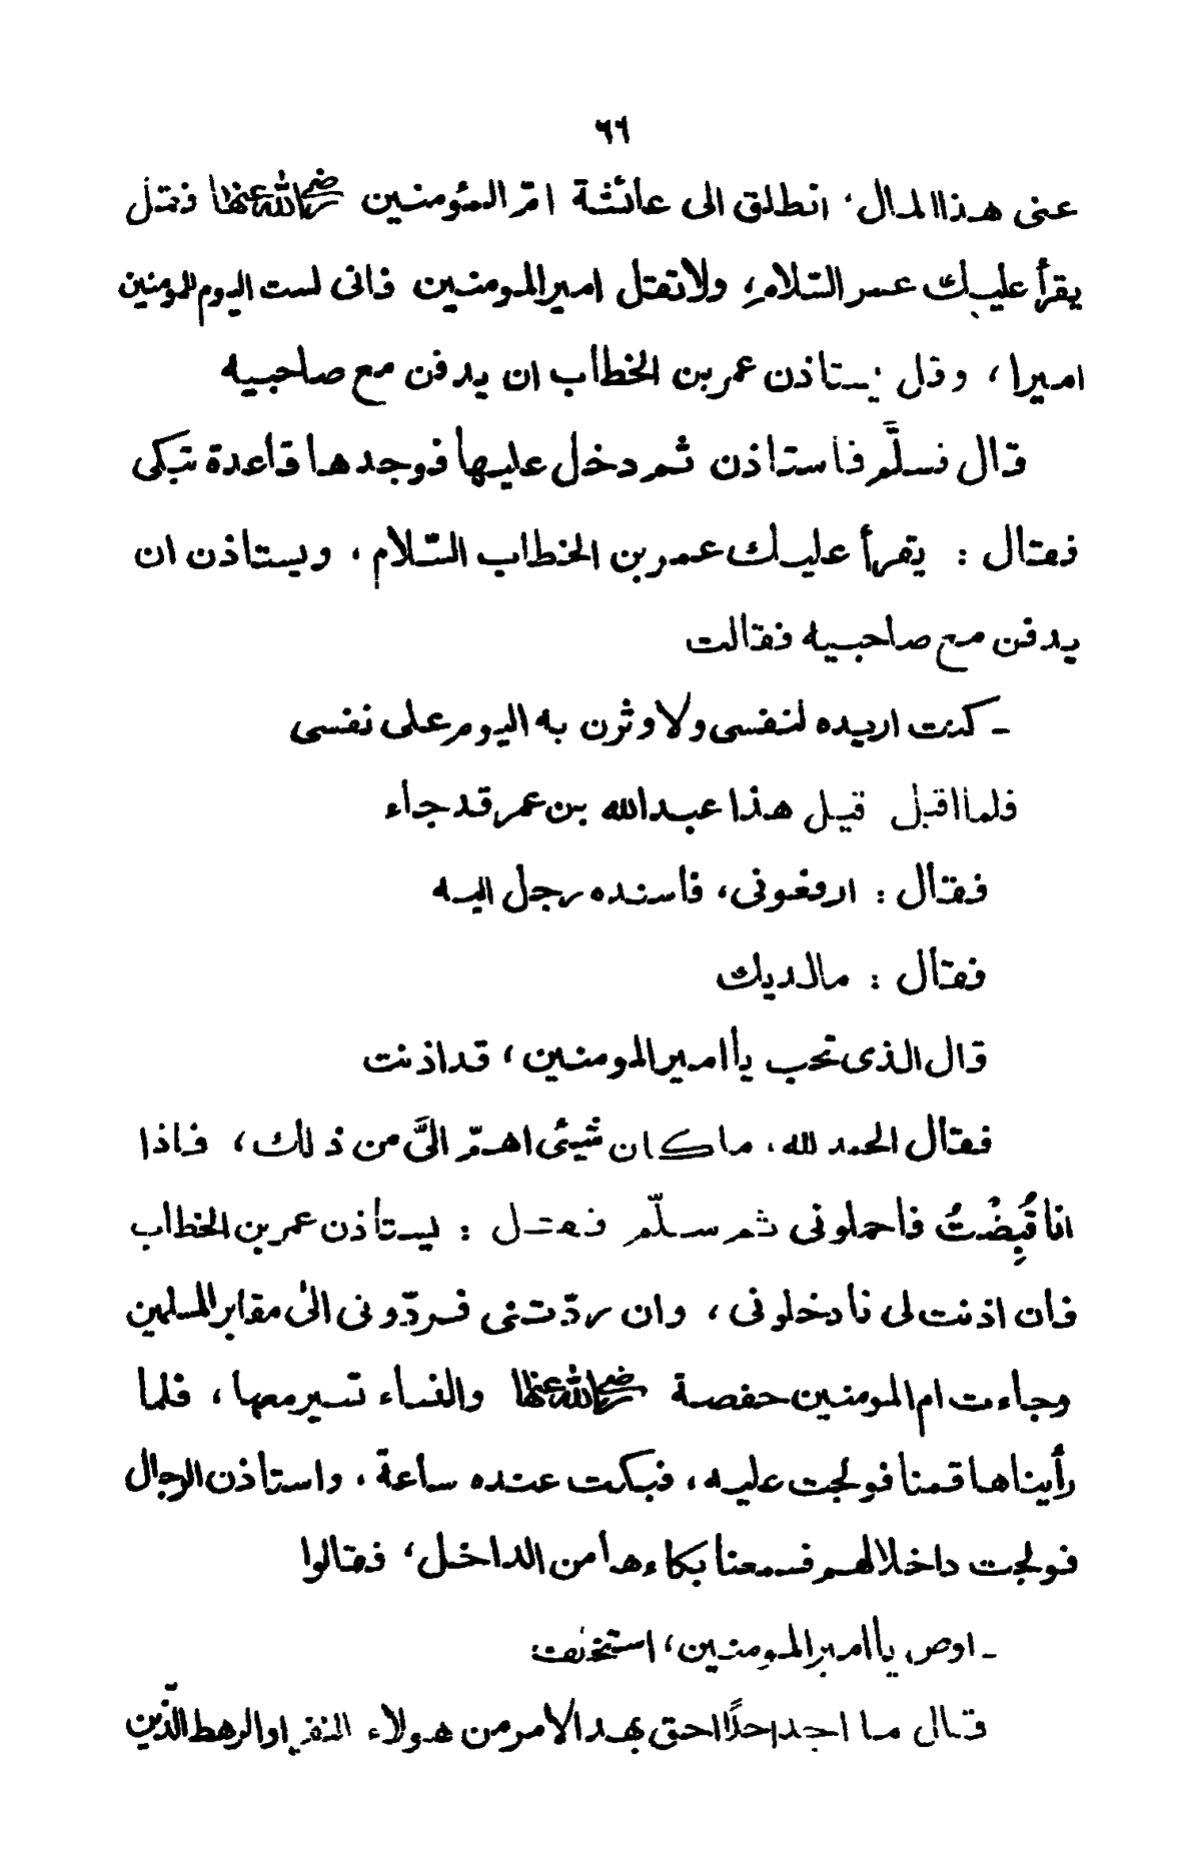 ٦٦
عنى هذا المال، انطلق الى عائشة امّ المؤمنين رضي الله عنها فقل
يقرأ عليك عمر السّلام، ولا تقل امير المومنين فانى لست اليوم للمومنين
اميرا، وقل يستاذن عمر بن الخطاب ان يدفن مع صاحبيه
قال فسلَّم فاستاذن ثم دخل عليها فوجدها قاعدة تبكى
فقال : يقرأ عليك عمر بن الخطاب السّلام، ويستاذن ان
يدفن مع صاحبيه فقالت
- كنت اريده لنفسى ولاوثرن به اليوم على نفسى
فلما اقبل قيل هذا عبدالله بن عمر قد جاء
فقال : ارفعونى، فاسنده رجل اليه
فقال : مالديك
قال الذى تحب يا امير المومنين، قد اذنت
فقال الحمد لله، ما كان شيئى اهمّ الىَّ من ذلك، فاذا
انا قُبِضْتُ فاحملونى ثم سلّم فقل : يستأذن عمر بن الخطاب
فان اذنت لى فادخلونى، وان ردّتنى فردّونى الىٰ مقابر المسلمين
وجاءت ام المومنين حفصة رضي الله عنها والنساء تسير معها، فلما
رأيناها قمنا فولجت عليه، فبكت عنده ساعة، واستاذن الرجال
فولجت داخلا لهم فسمعنا بكاءها من الداخل، فقالوا
- اوص يا امير المومنين، استخلف
قال ما اجد احدًا احق بهدا الامر من هولاء النفر او الرهط الّذين